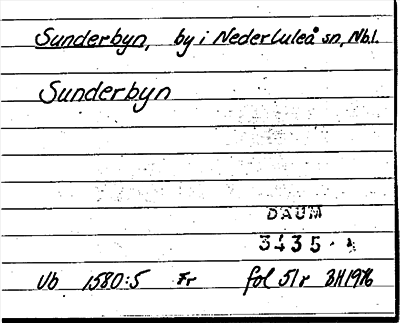 Sunderbyn, by i Nederluleå sn, Nbl.
Sunderbyn
DAUM
3435
Vb 1580:5 Fr fol 51r BH 1976